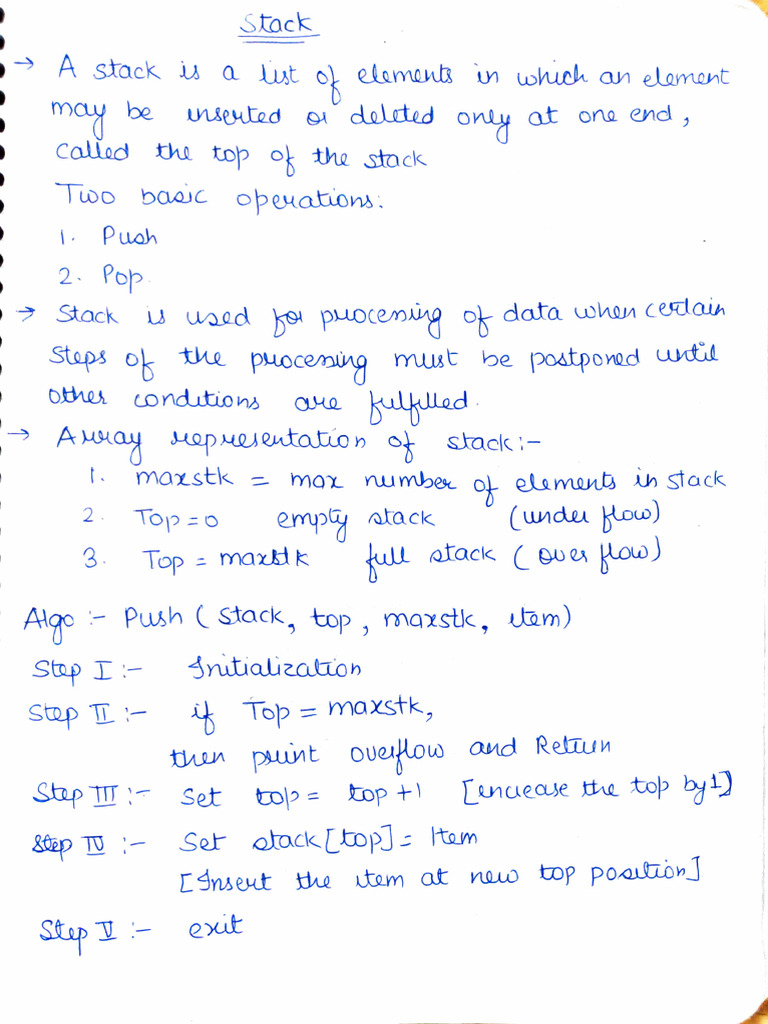 Stack
→ A stack is a list of elements in which an element
may be inserted or deleted only at one end,
called the top of the stack
Two basic operations:
1. Push
2. Pop.
→ Stack is used for processing of data when certain
steps of the processing must be postponed until
other conditions are fulfilled.
→ Array representation of stack:-
1. maxstk = max number of elements in stack
2. Top=0 empty stack (under flow)
3. Top = maxstk full stack (over flow)
Algo :- Push (stack, top, maxstk, item)
Step I :- Initialization
Step II :- if Top = maxstk,
then print overflow and Return
Step III :- Set top = top +1 [encrease the top by 1]
Step IV :- Set stack[top] = Item
[Insert the item at new top position]
Step V :- exit